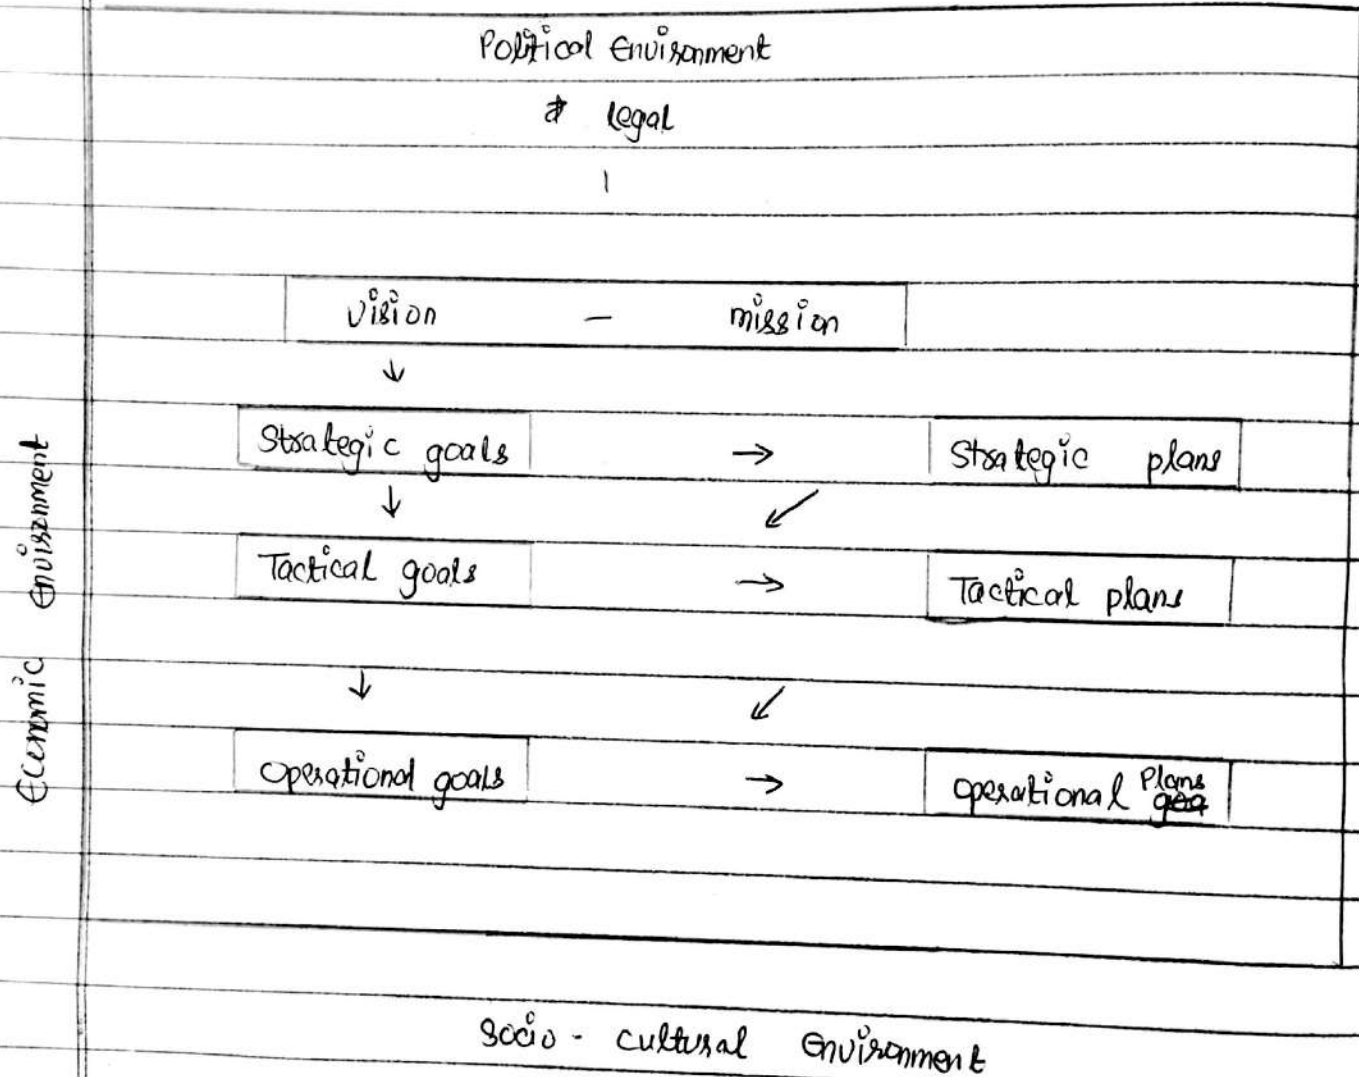 Political Environment
legal
vision - mission
↓
Strategic goals → Strategic plans
↓ ↙
Tactical goals → Tactical plans
↓ ↙
operational goals → operational Plans
Economic Environment
Socio - cultural Environment